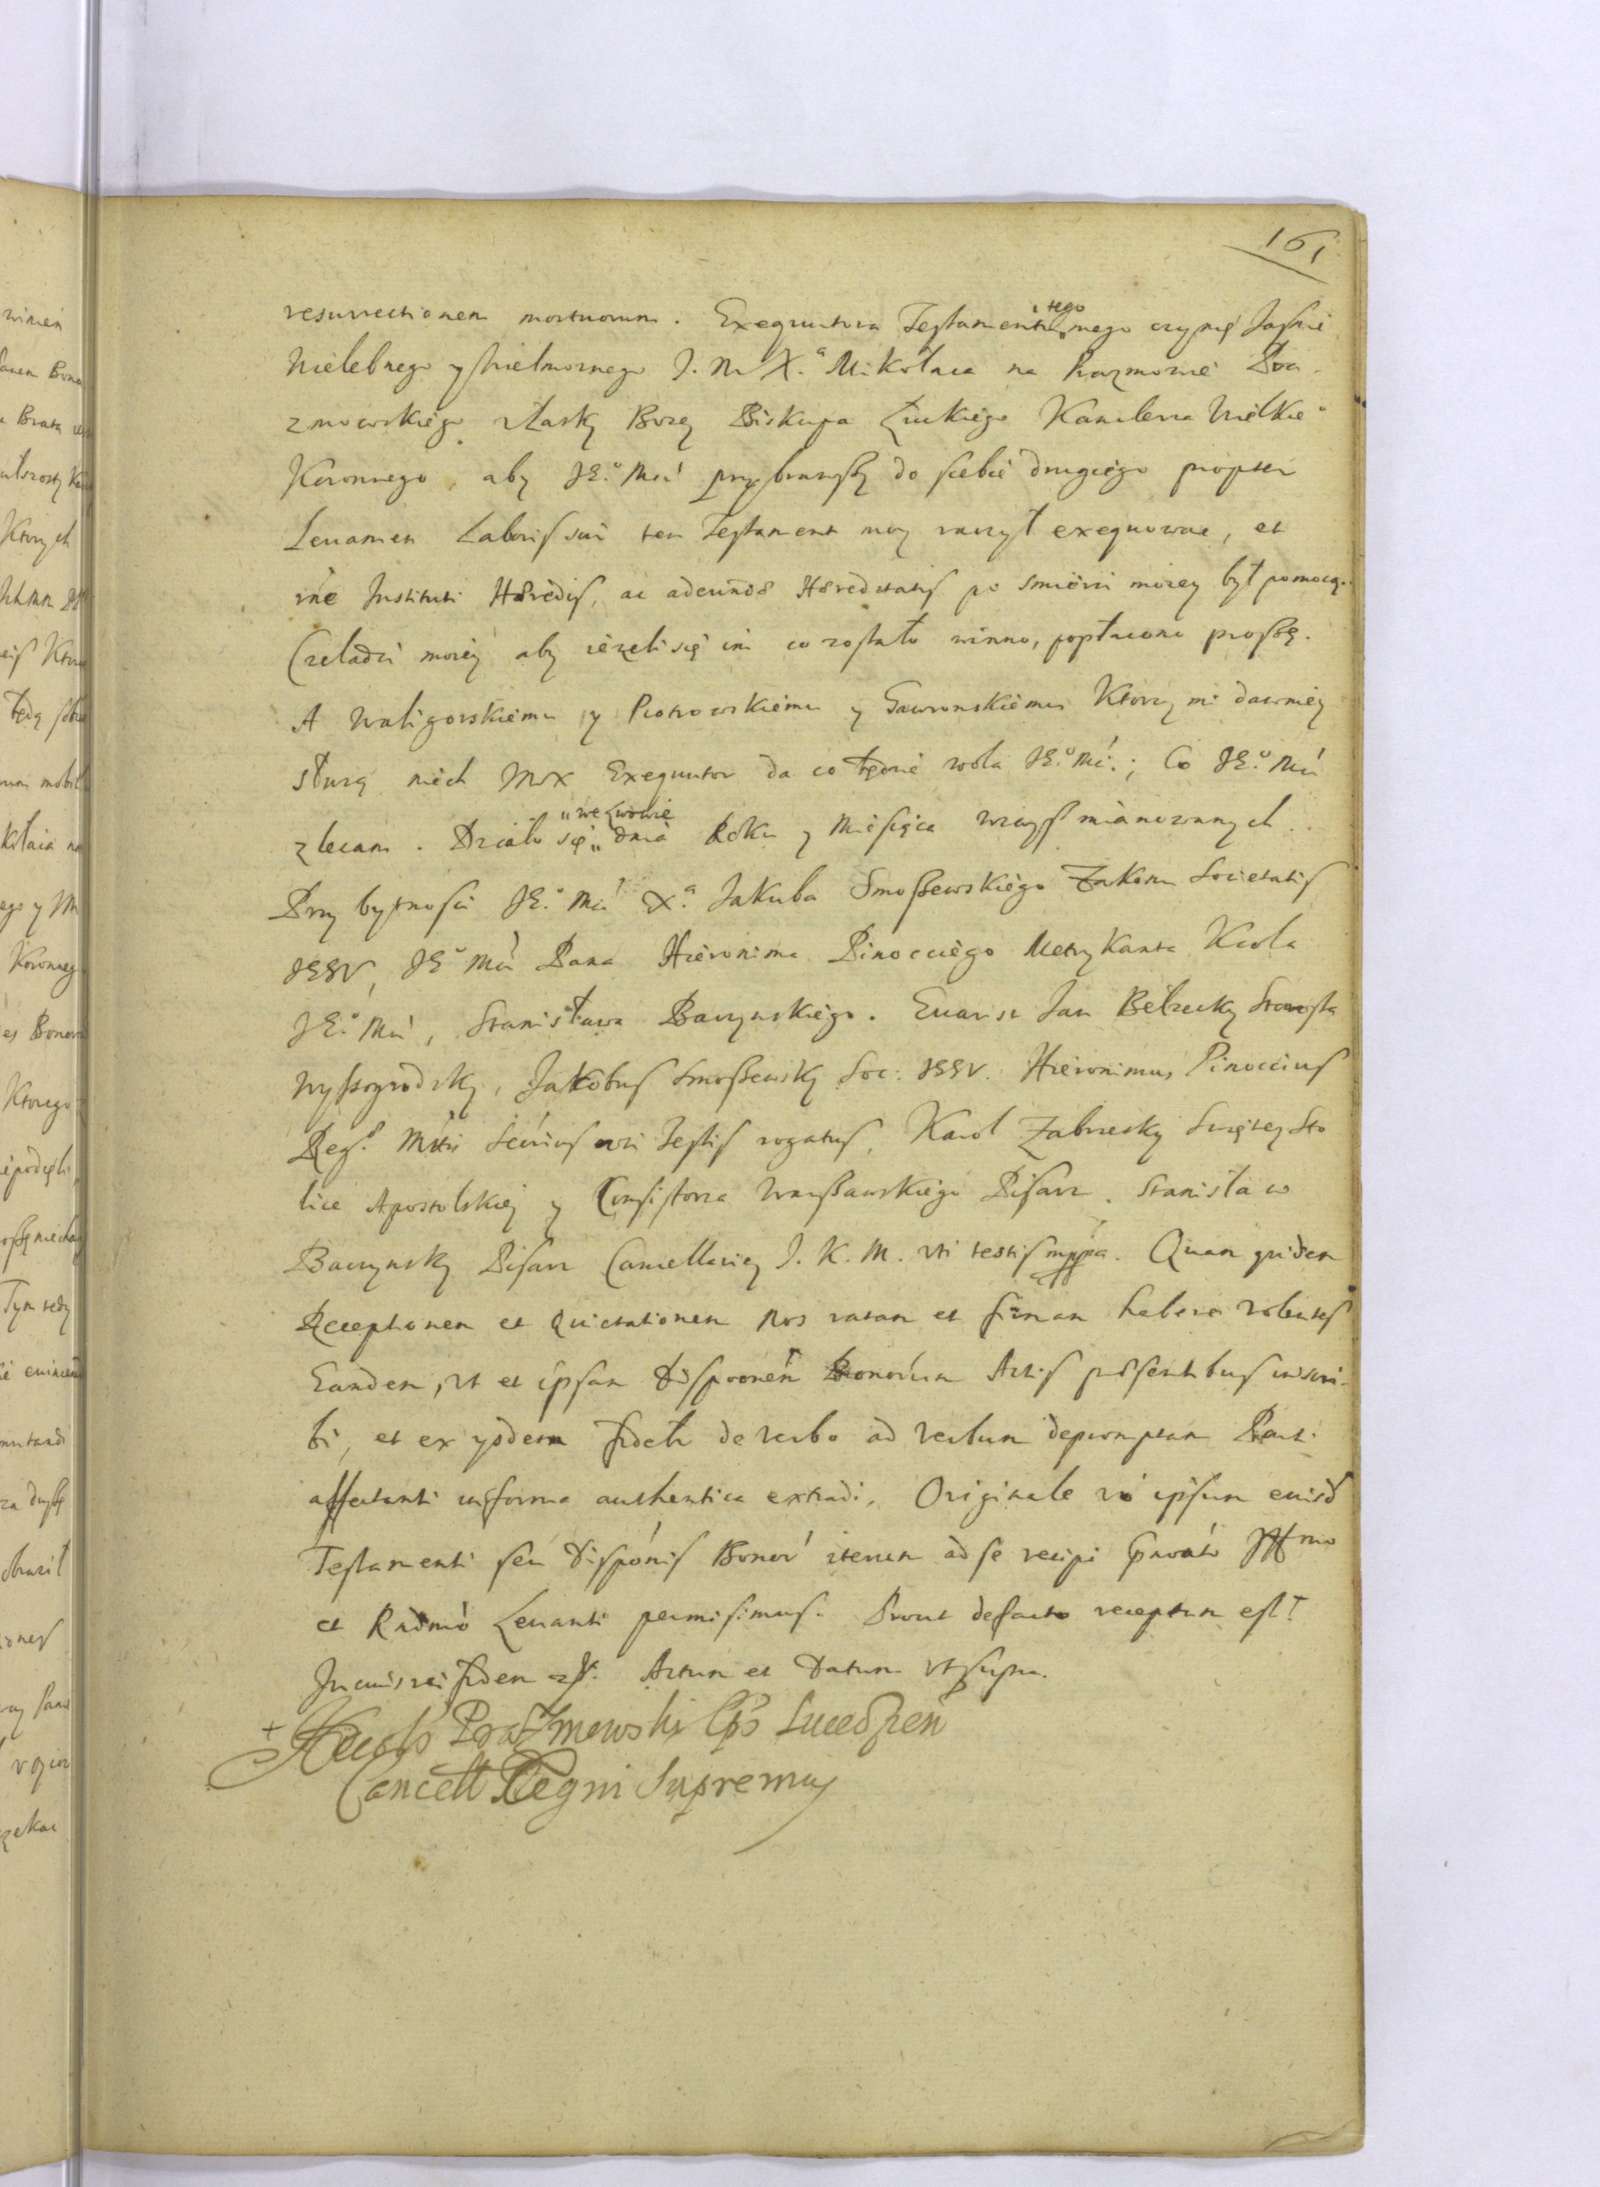 161
resurrectionem mortuorum. Exequutora Testamentu tego mego czynię Jaśnie
Wielebnego y Wielmożnego J. M X.ª Mikołaia na Prazmowie Pra-
zmowskiego z Łasky Bozey Biskupa Łuckiego Kanclerza Wielkie°
Koronnego, aby JE.° Mść przybrawszy do siebie drugiego propter
Leuamen Laboris sui ten Testament moy raczył exequowac, et
Instituti Hæredis, ac adeundæ Hæreditatis po smierci moiey był pomocą.
Czeladzi moiey aby iezeli się im co zostało winno, popłacono proszę.
A Waligorskiemu y Piotrowskiemu y Gawronskiemu Ktorzy mi dawniey
słuzą niech Mox Exequutor da co będzie wola JE.° Mći.; Co JE.° Mći
zlecam. Działo się „we Lwowie „ dnia Roku y Miesiąca wwysz mianowanych.
Przy bytnosci JE.° Mći X.ª Jakuba Smoszewskiego Zakonu Societatis
JESV, JE° Mći Pana Hieronima Pinocciego Metrykanta Krola
JE.° Mći, Stanisława Baczynskiego. Euarist Jan Bełzecky Starosta
Wyszogrodzky, Jakobus Smoszewsky Soc: JESV. Hieronimus Pinoccius
Reg. Mttis Secrius uti Testis rogatus, Karol Zabrzesky Swiętey Sto
lice Apostolskiey y Consistorza Warszawskiego Pisarz. Stanisław
Baczynsky Pisarz Cancellariey J. K. M. uti testis mppa. Quam quidem
Receptionem et Quietationem Nos ratam et firmam habere volentes
Eandem, ut et ipsam Dispoonem Bonorum Actis præsentibus inscri-
bi, et ex ysdem fideli de verbo ad verbum depromptam Parti
affectanti in forma authentica extradi, Originale vó ipsum eiusd
Testamenti seu Dispónis Bonor' iterum ad se recipi Illmo
et Rndmó Leuanti permisimus. Prout de facto receptum est
In cuius rei fidem Actum et Datum Vt supra.
+ Nicols Prazmowski Eps Luceorien
Cancell Regni Supremus